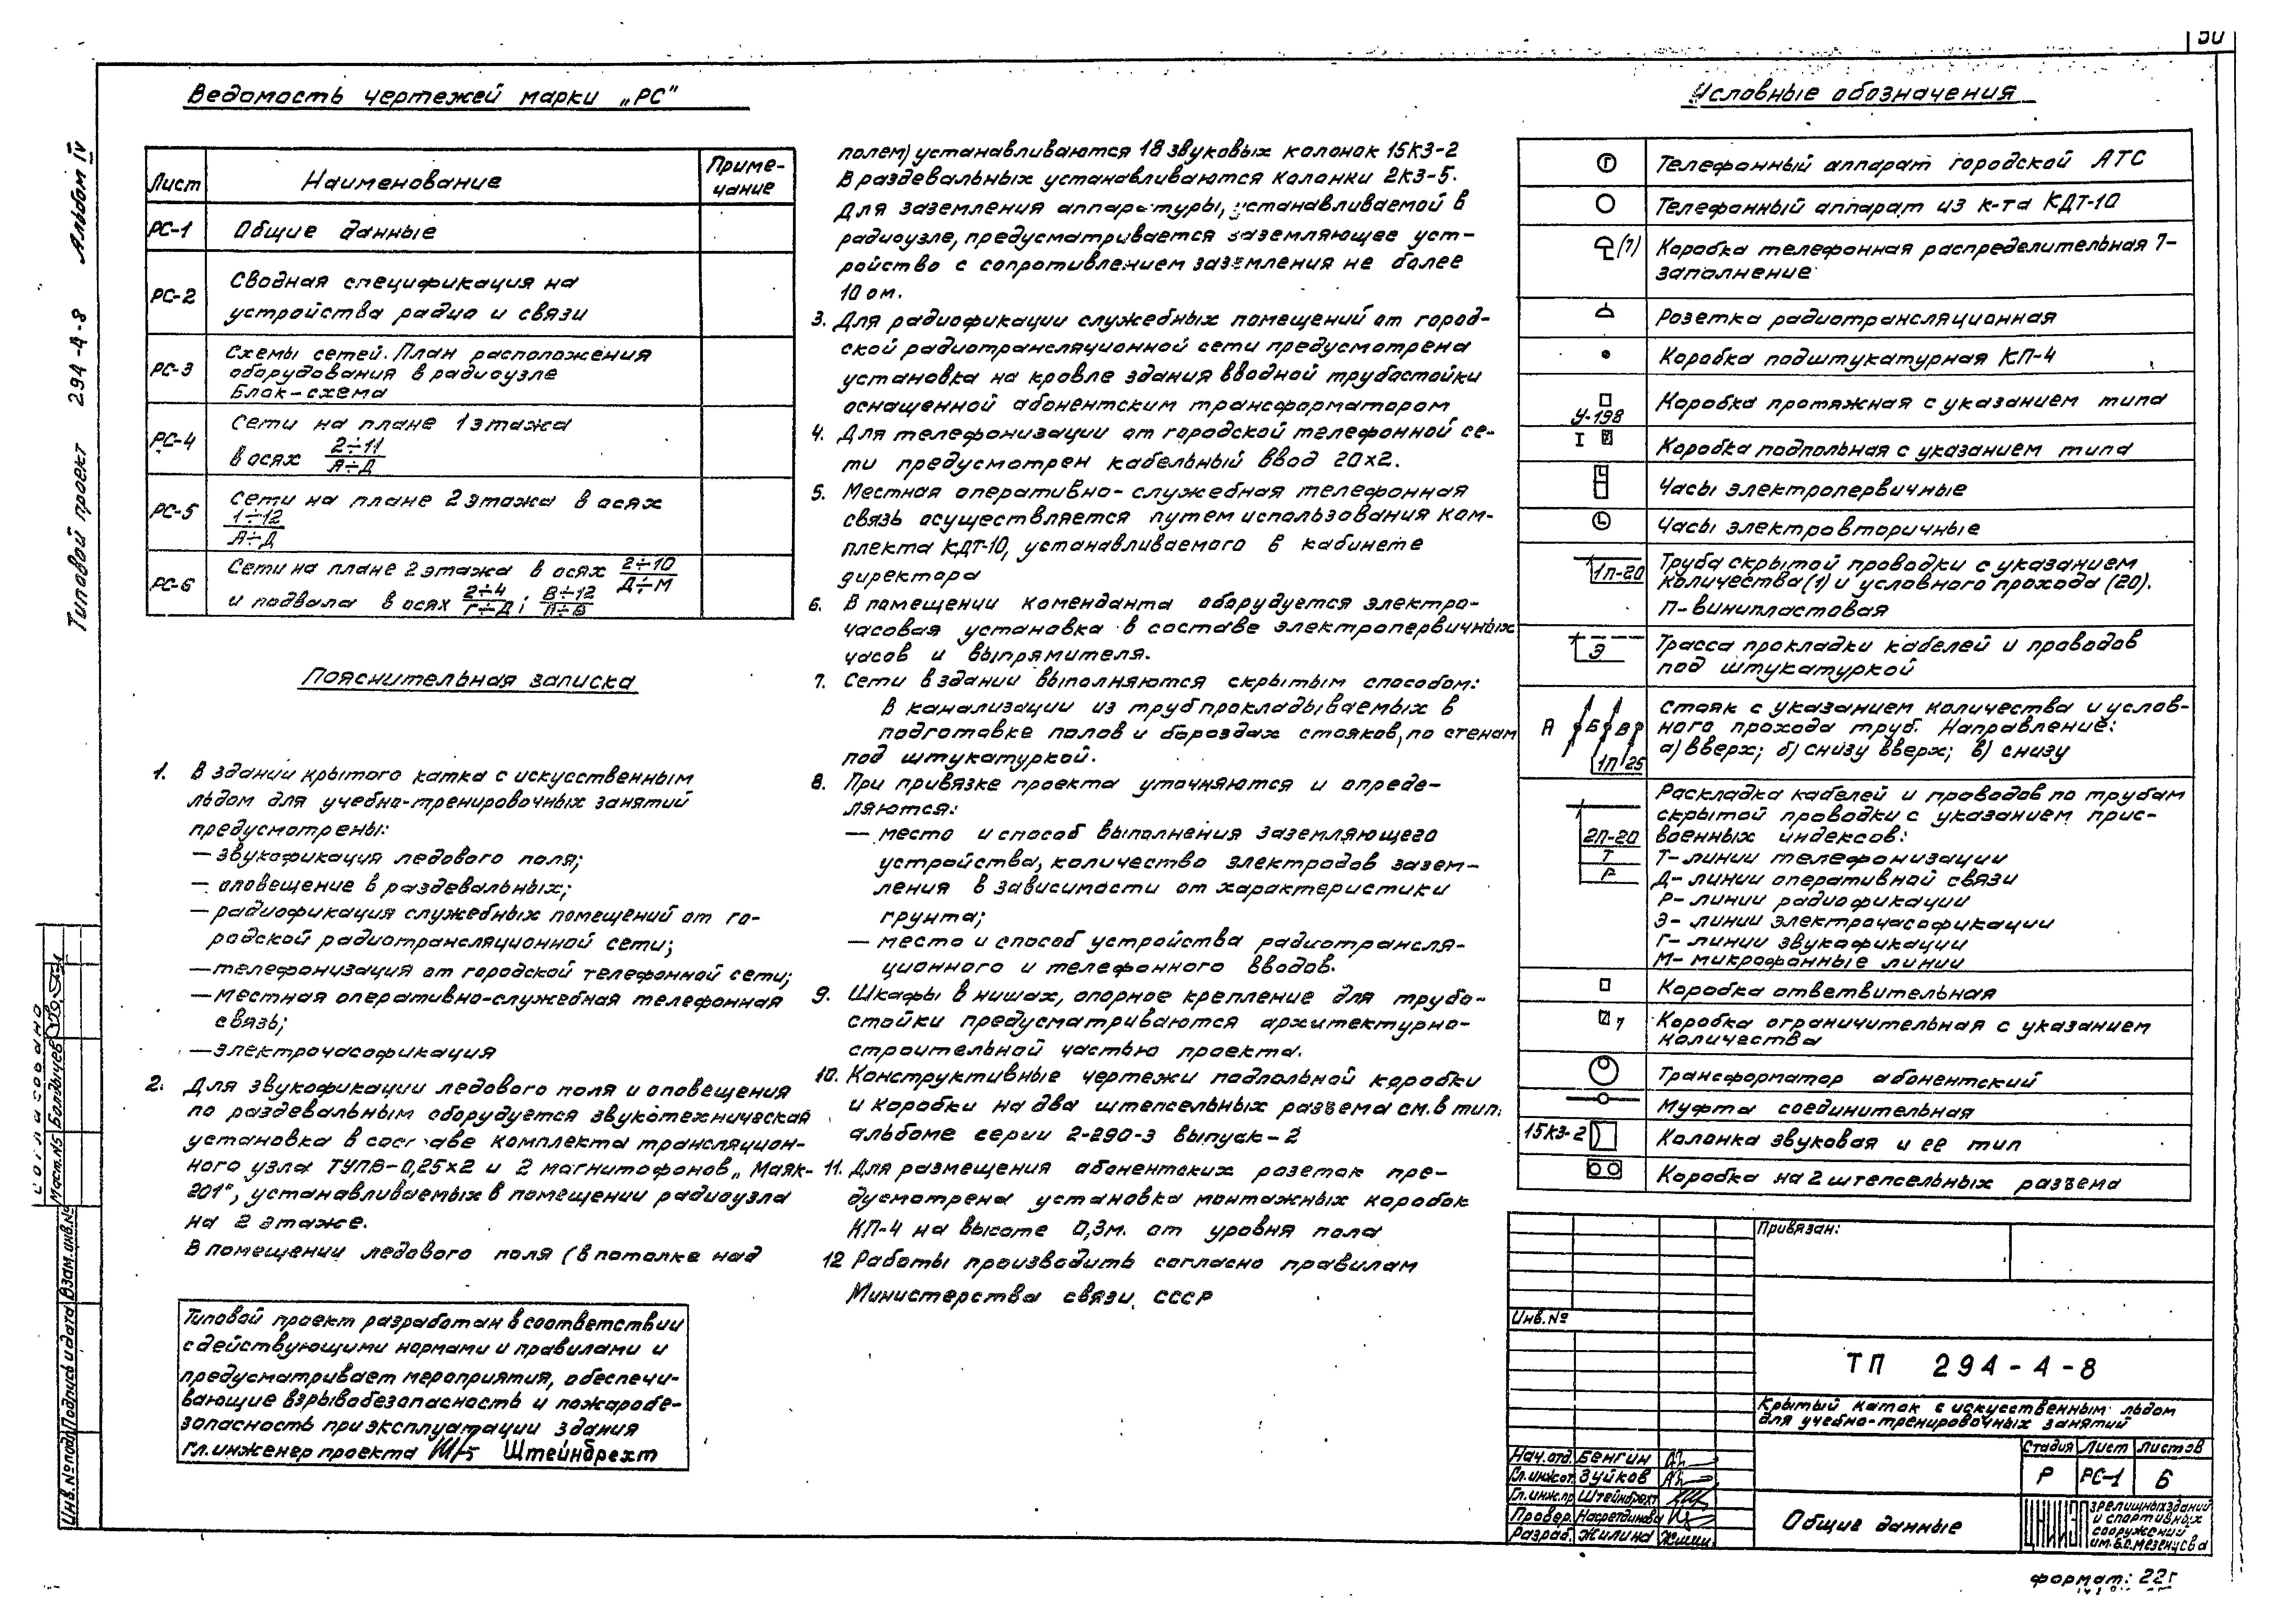 50
Ведомость чертежей марки „РС"
Лист
Наименование
Приме-
чание
РС-1
Общие данные
РС-2
Сводная спецификация на
устройства радио и связи
РС-3
Схемы сетей. План расположения
оборудования в радиоузле
Блок-схема
РС-4
Сети на плане 1 этажа
в осях 2÷11
А÷Д
РС-5
Сети на плане 2 этажа в осях
1÷12
А÷Д
РС-6
Сети на плане 2 этажа в осях 2÷10
Д÷М
и подвала в осях 2÷4 ; 8÷12
Г÷Д
Пояснительная записка
1. В здании крытого катка с искуственным
льдом для учебно-тренировочных занятий
предусмотрены:
— звукофикация ледового поля;
— оповещение в раздевальных;
— радиофикация служебных помещений от го-
родской радиотрансляционной сети;
— телефонизация от городской телефонной сети;
— местная оперативно-служебная телефонная
связь;
— электрочасофикация
2. Для звукофикации ледового поля и оповещения
по раздевальным оборудуется звукотехническая
установка в составе комплекта трансляцион-
ного узла ТУПВ-0,25х2 и 2 магнитофонов „Маяк-
201", устанавливаемых в помещении радиоузла
на 2 этаже.
В помещении ледового поля (в потолке над
Типовой проект разработан в соответствии
с действующими нормами и правилами и
предусматривает мероприятия, обеспечи-
вающие взрывобезопасность и пожаробе-
зопасность при эксплуатации здания
Гл. инженер проекта Штейнбрехт
полем) устанавливаются 18 звуковых колонок 15КЗ-2
В раздевальных устанавливаются колонки 2КЗ-5.
Для заземления аппаратуры, устанавливаемой в
радиоузле, предусматривается заземляющее уст-
ройство с сопротивлением заземления не более
10 ом.
3. Для радиофикации служебных помещений от город-
ской радиотрансляционной сети предусмотрена
установка на кровле здания вводной трубостойки
оснащенной абонентским трансформатором
4. Для телефонизации от городской телефонной се-
ти предусмотрен кабельный ввод 20х2.
5. Местная оперативно-служебная телефонная
связь осуществляется путем использования ком-
плекта КДТ-10, устанавливаемого в кабинете
директора
6. В помещении коменданта оборудуется электро-
часовая установка в составе электропервичных
часов и выпрямителя.
7. Сети в здании выполняются скрытым способом:
В канализации из труб прокладываемых в
подготовке полов и бороздах стояков, по стенам
под штукатуркой.
8. При привязке проекта уточняются и опреде-
ляются:
— место и способ выполнения заземляющего
устройства, количество электродов зазем-
ления в зависимости от характеристики
грунта;
— место и способ устройства радиотрансля-
ционного и телефонного вводов.
9. Шкафы в нишах, опорное крепление для трубо-
стойки предусматриваются архитектурно-
строительной частью проекта.
10. Конструктивные чертежи подпольной коробки
и коробки на два штепсельных разъема см. в тип.
альбоме серии 2-290-3 выпуск-2
11. Для размещения абонентских розеток пре-
дусмотрена установка монтажных коробок
КП-4 на высоте 0,3м. от уровня пола
12 Работы производить согласно правилам
Министерства связи СССР
Условные обозначения
Г Телефонный аппарат городской АТС
Телефонный аппарат из к-та КДТ-10
(7) Коробка телефонная распределительная 7-
заполнение
Розетка радиотрансляционная
Коробка подштукатурная КП-4
У-198 Коробка протяжная с указанием типа
I Коробка подпольная с указанием типа
Часы электропервичные
Часы электровторичные
1П-20 Труба скрытой проводки с указанием
количества (1) и условного прохода (20).
П-винипластовая
Э Трасса прокладки кабелей и проводов
под штукатуркой
А Б В 1П 25 Стояк с указанием количества и услов-
ного прохода труб. Направление:
а) вверх; б) снизу вверх; в) снизу
2П-20
Т
Р
Раскладка кабелей и проводов по трубам
скрытой проводки с указанием прис-
военных индексов:
Т- линии телефонизации
Д- линии оперативной связи
Р- линии радиофикации
Э- линии электрочасофикации
Г- линии звукофикации
М- микрофонные линии
Коробка ответвительная
7 Коробка ограничительная с указанием
количества
Трансформатор абонентский
Муфта соединительная
15КЗ-2 Колонка звуковая и ее тип
Коробка на 2 штепсельных разъема
Привязан:
Инв.№
ТП 294-4-8
Крытый каток с искусственным льдом
для учебно-тренировочных занятий
Стадия Лист Листов
Р РС-1 6
Нач.отд. Бенгин
Гл.инж.от. Зуйков
Гл.инж.пр. Штейнбрехт
Провер. Насретдинова
Разраб. Жилина
Общие данные
ЦНИИЭП зрелищных зданий
и спортивных
сооружений
им. Б.С. Мезенцева
формат: 22г
Типовой проект 294-4-8 Альбом IV
Согласовано
Маст.№5 Болдычев
Инв.№ подл. Подпись и дата Взам.инв.№